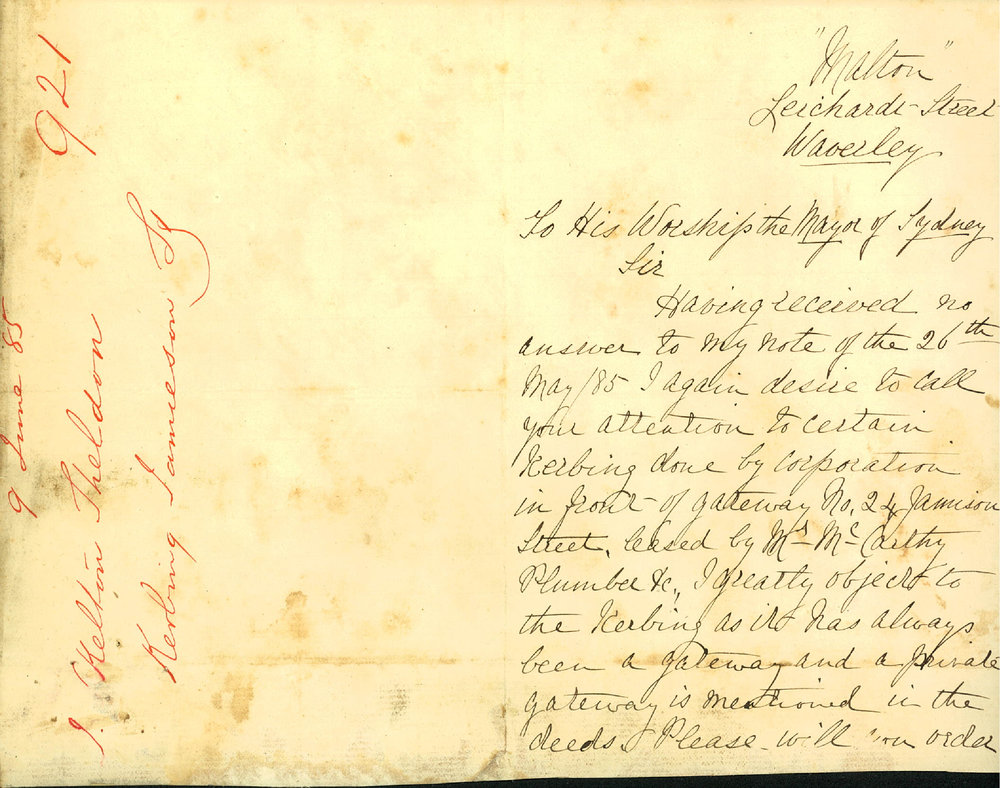 921
9 June 85
J. Kelton Sheldon
Kerbing Jamieson St
"Malton"
Leichardt Street
Waverley
To His Worship the Mayor of Sydney
Sir
Having received no
answer to my note of the 26th
May/85 I again desire to call
your attention to certain
Kerbing done by corporation
in front of gateway No. 24 Jamison
Street, leased by Mr McCarthy
Plumber &c., I greatly object to
the Kerbing as it has always
been a gateway and a private
gateway is mentioned in the
deeds. Please will you order